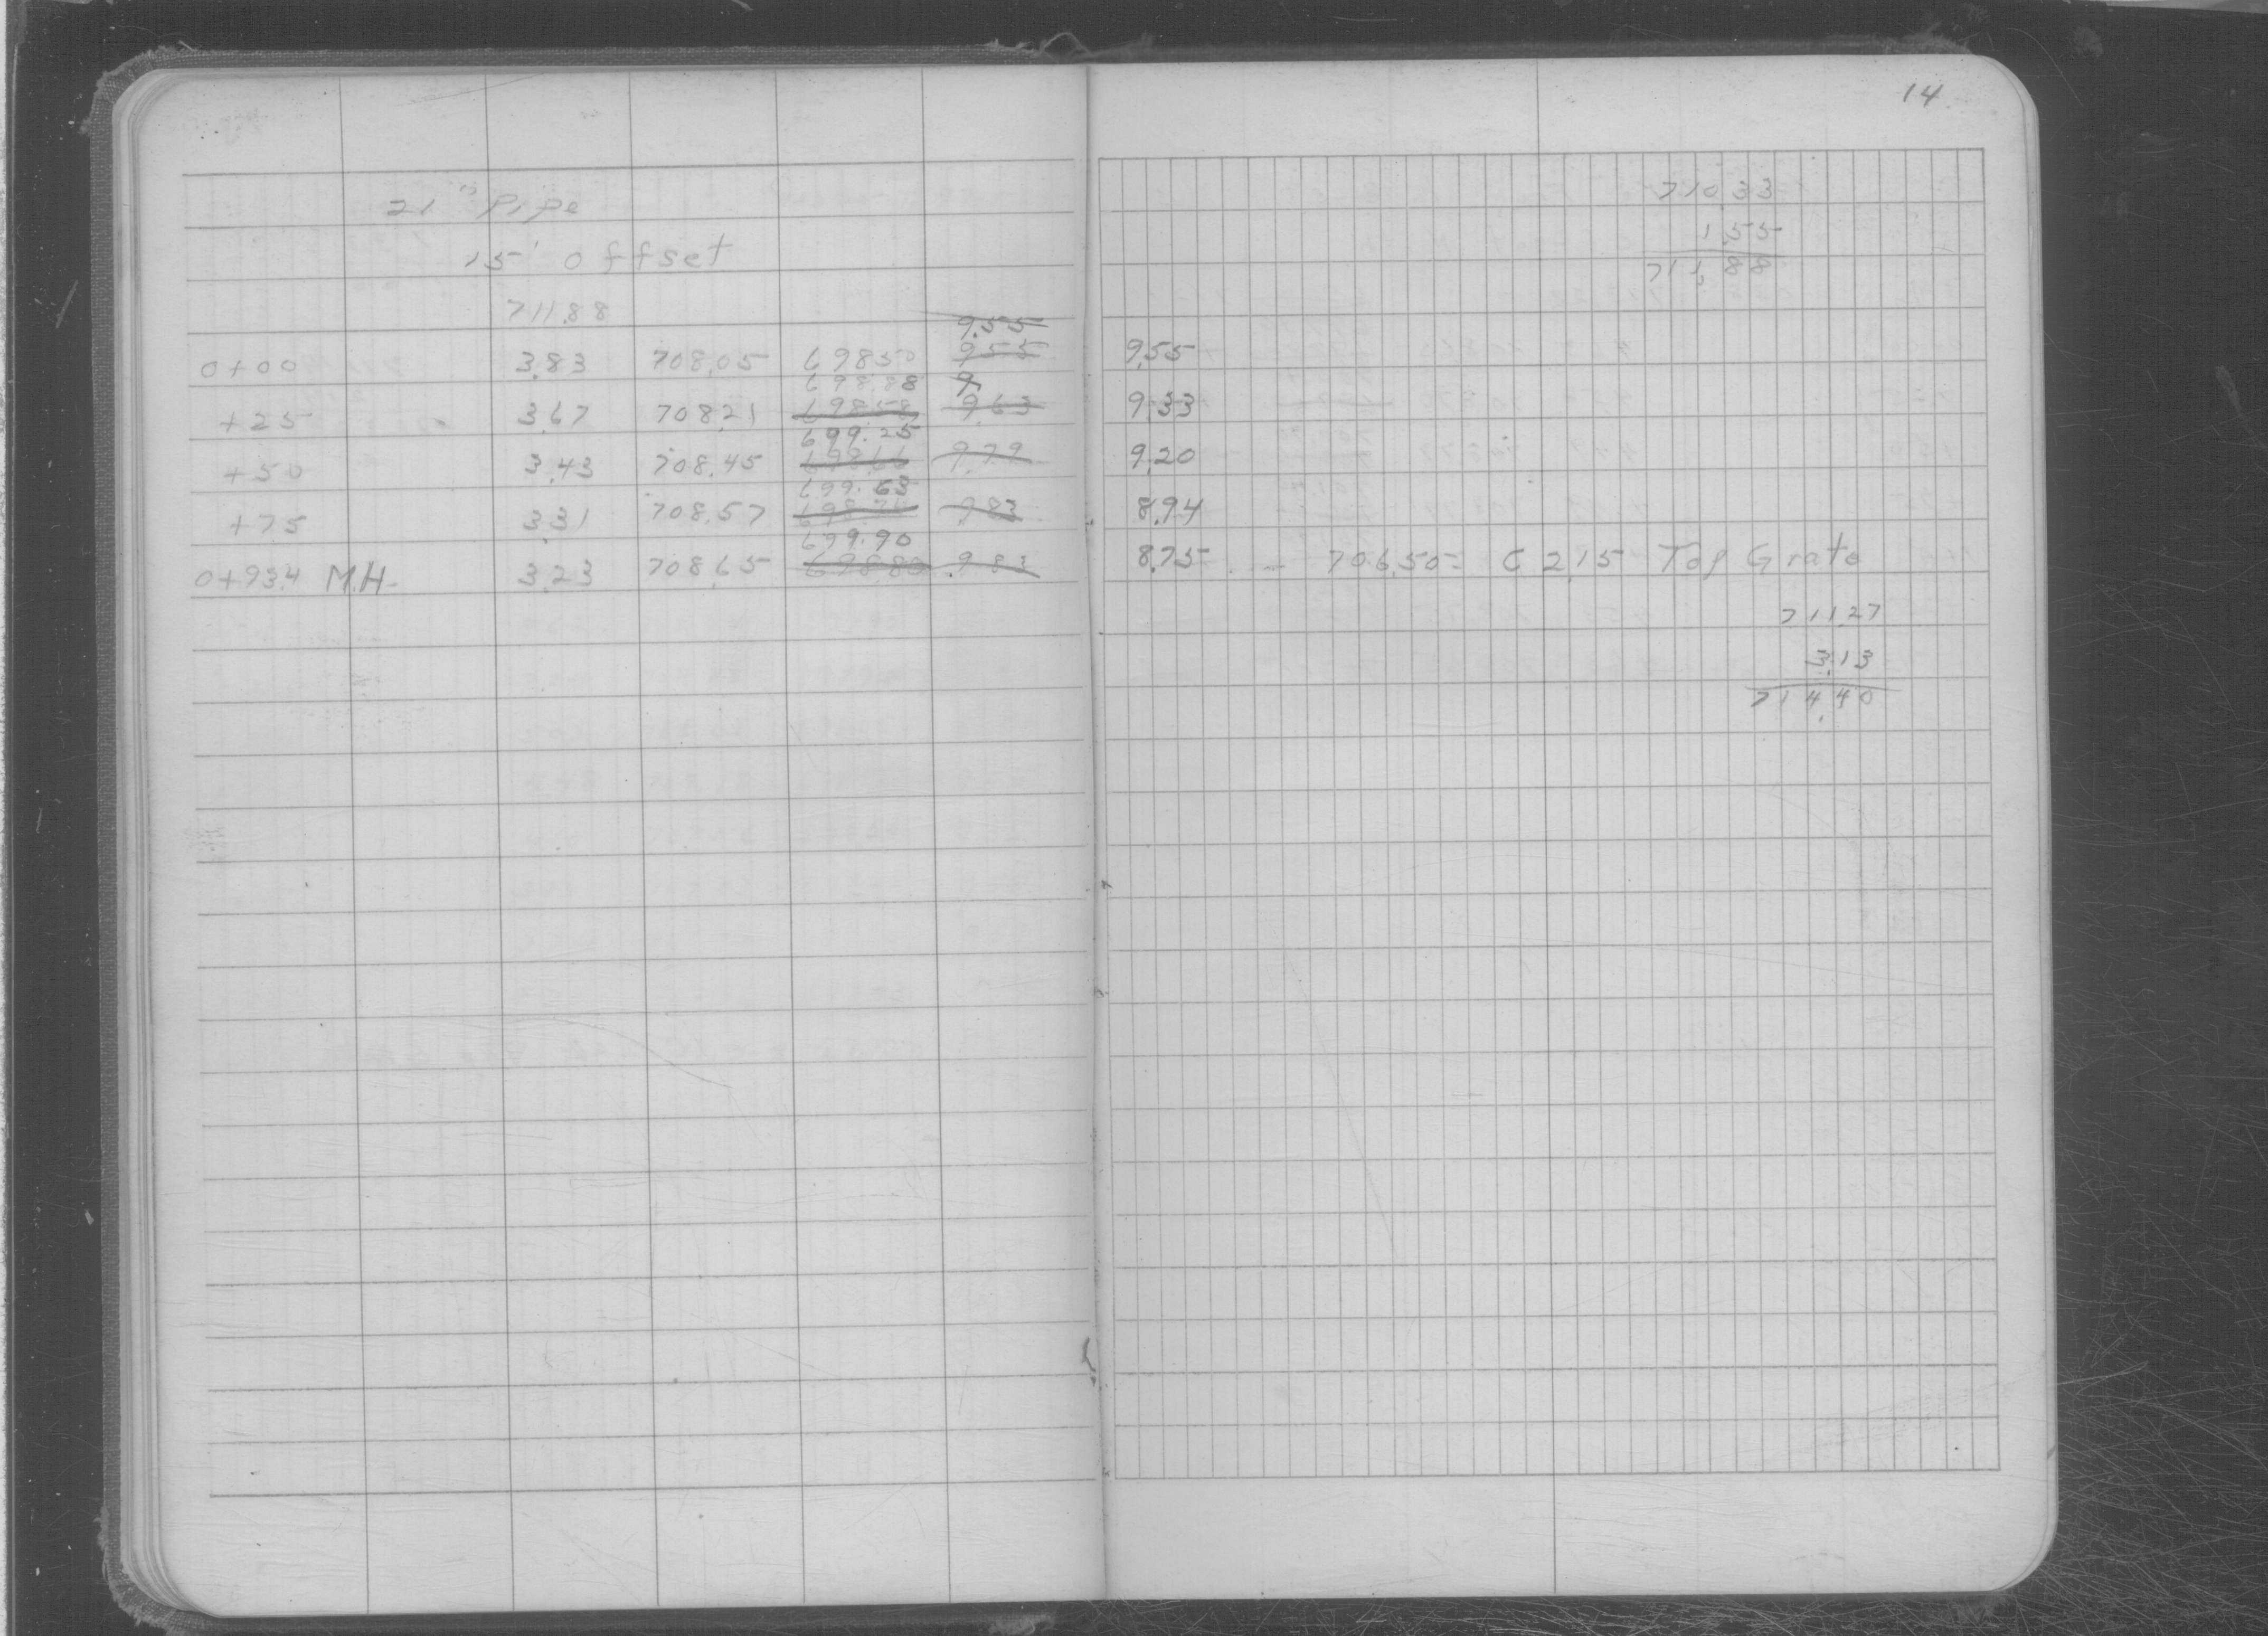 14
21" Pipe
15' offset
711.88
9.55
0+00 3.83 708.05 698.50 9.55
698.88 9
+25 3.67 708.21 698.58 9.63
699.25
+50 3.43 708.45 698.66 9.79
699.63
+75 3.31 708.57 698.74 9.83
699.90
0+93.4 M.H. 3.23 708.65 698.80 9.83
710.33
1.55
711.88
9.55
9.33
9.20
8.94
8.75 - 706.50 = C 2.15 Top Grate
711.27
3.13
714.40